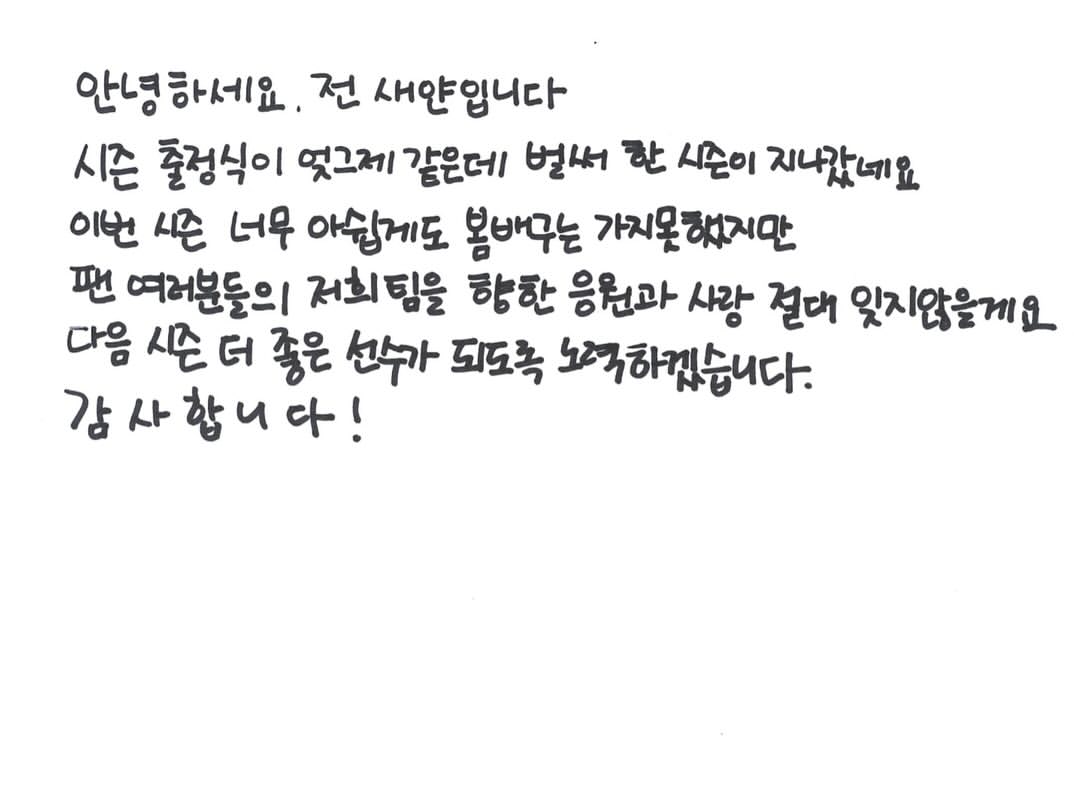 안녕하세요. 전 새얀입니다
시즌 출정식이 엊그제 같은데 벌써 한 시즌이 지나갔네요
이번 시즌 너무 아쉽게도 봄배구는 가지못했지만
팬 여러분들의 저희팀을 향한 응원과 사랑 절대 잊지않을게요
다음 시즌 더 좋은 선수가 되도록 노력하겠습니다.
감사합니다!